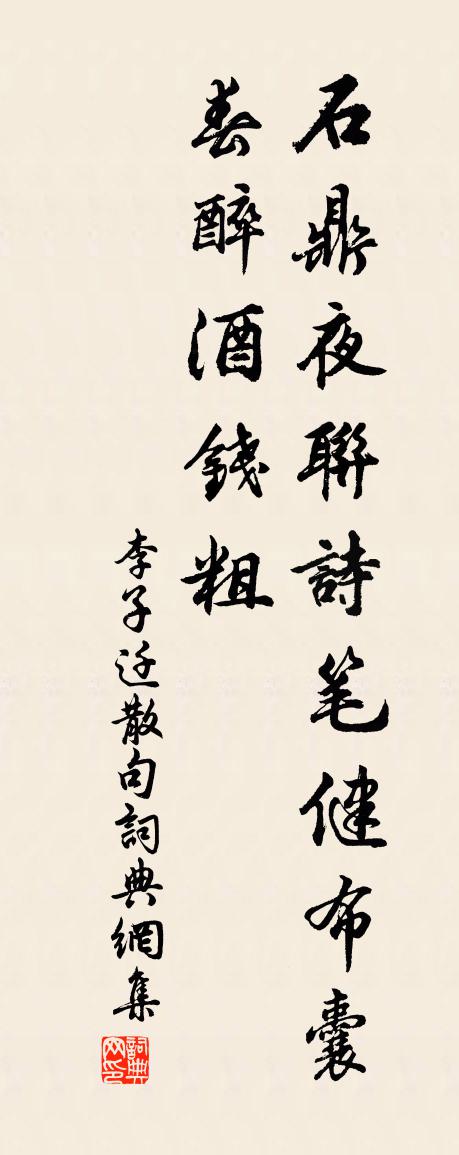 石鼎夜聯詩笔健布囊
春醉酒錢粗
李子迁散句詞典網集
詞典
网印